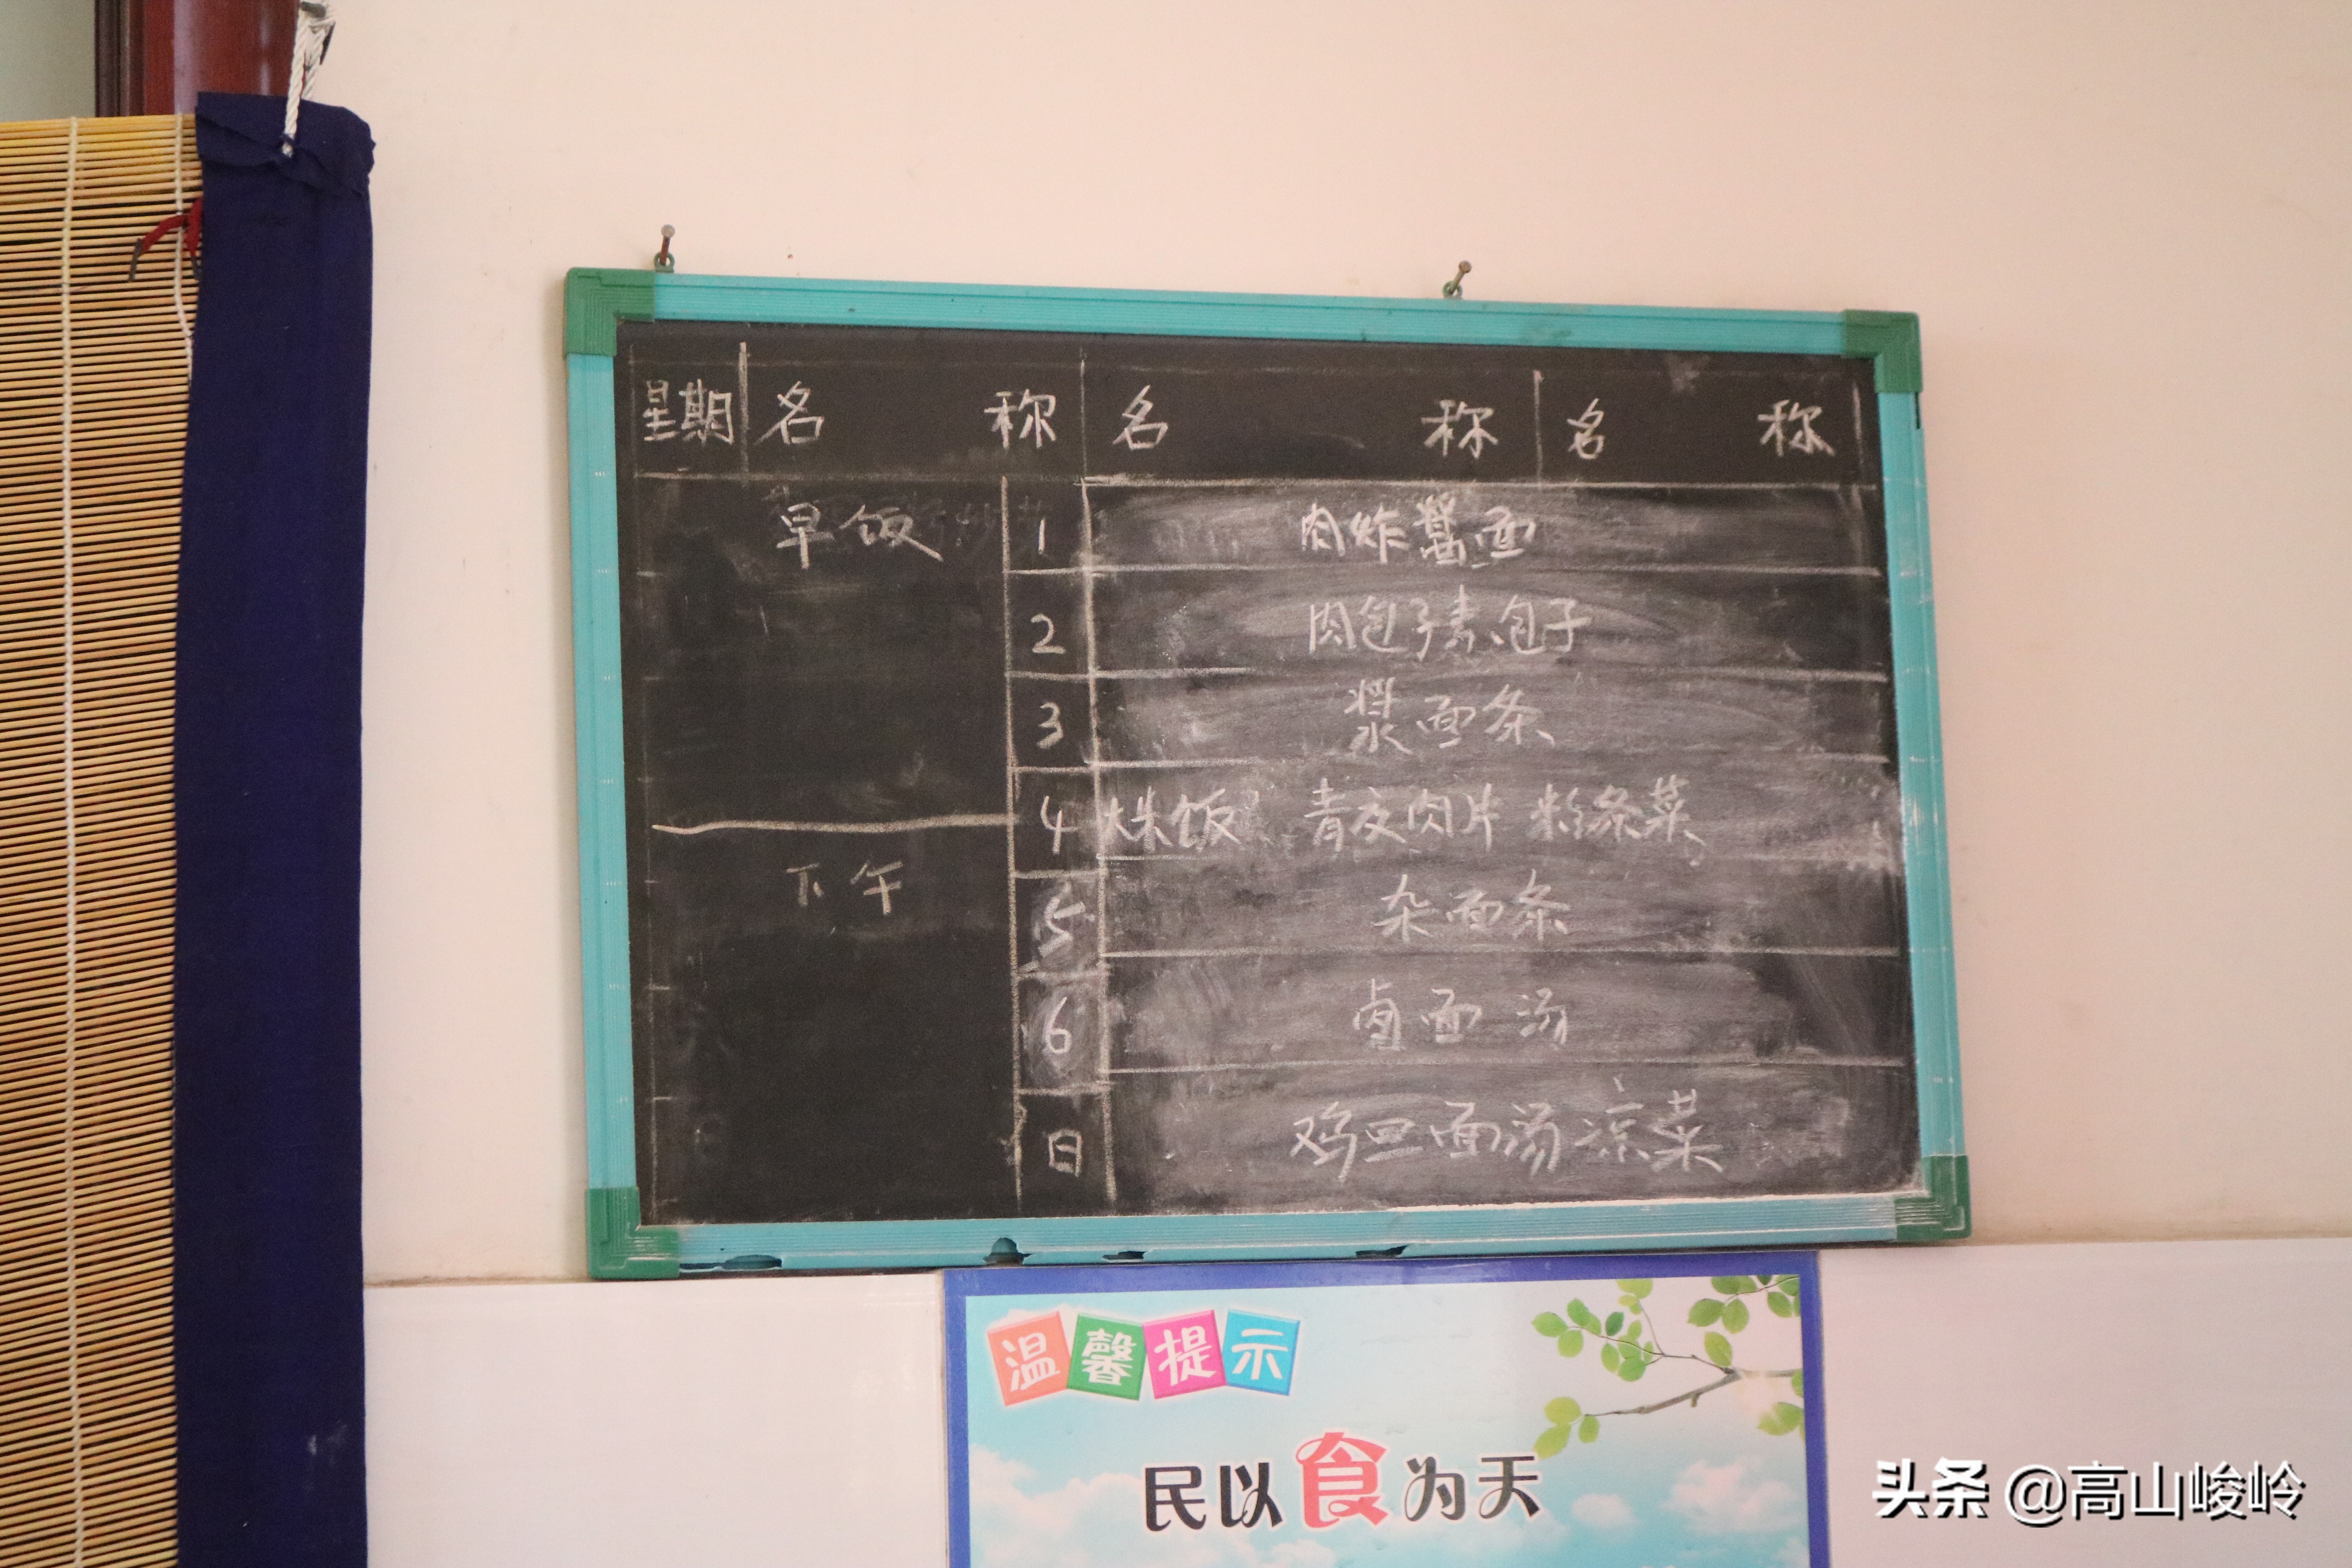 星期 名 称 名 称 名 称
早饭 1 肉炸酱面
2 肉包子素包子
3 浆面条
4 大米饭 青皮肉片 粉条菜
下午
5 杂面条
6 卤面 汤
日 鸡旦面汤凉菜
温馨提示
民以食为天
头条 @高山峻岭